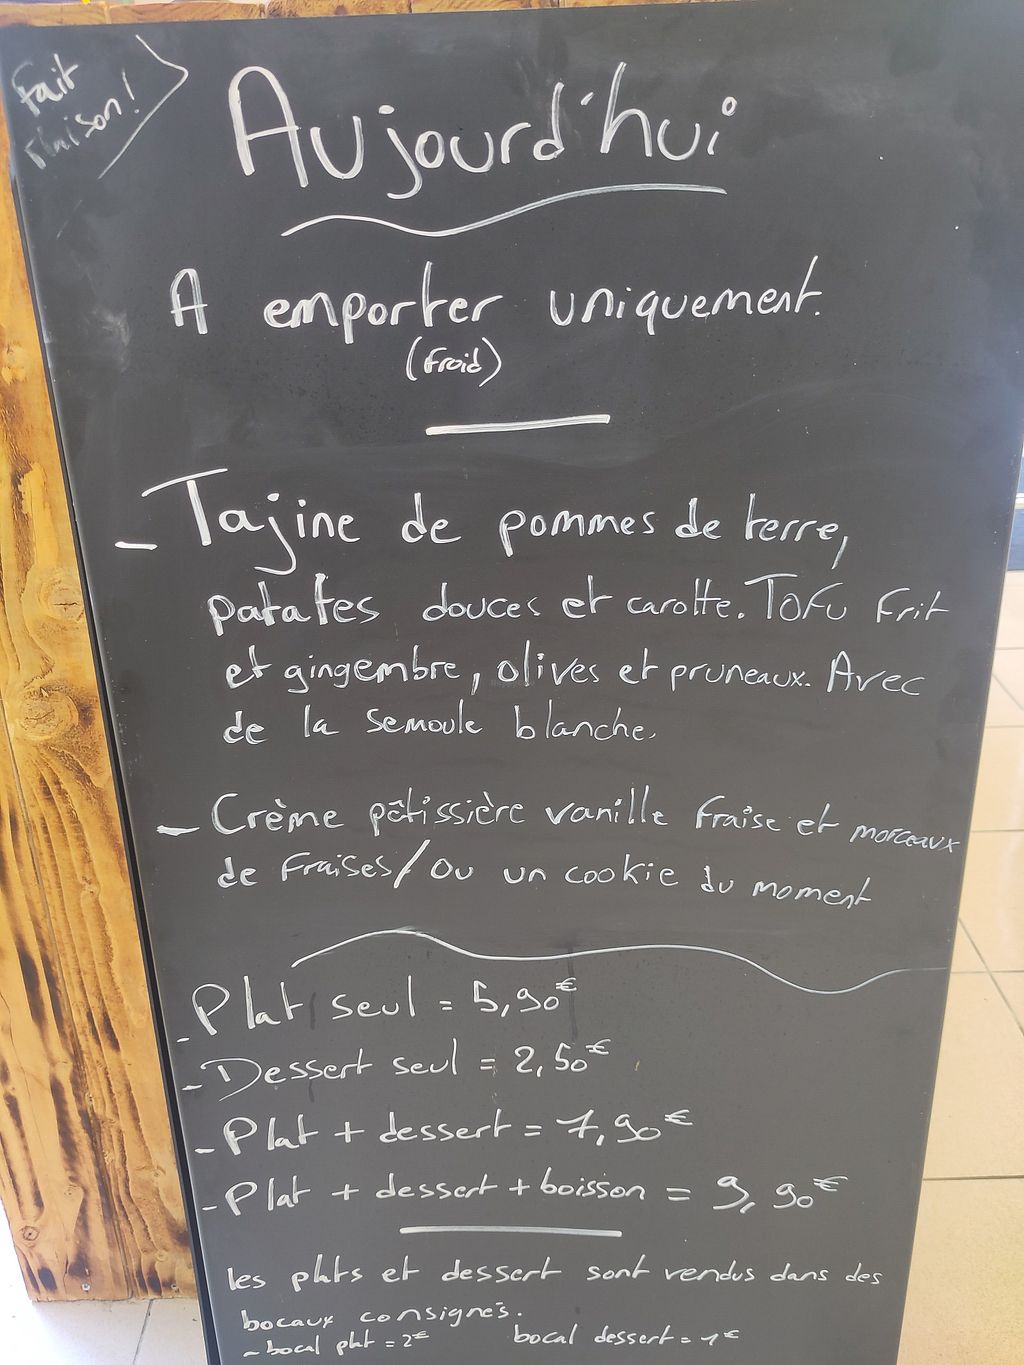 Fait
Maison!
Aujourd'hui
A emporter uniquement.
(froid)
- Tajine de pommes de terre,
patates douces et carotte. Tofu frit
et gingembre, olives et pruneaux. Avec
de la semoule blanche.
- Crème pâtissière vanille fraise et morceaux
de fraises/ou un cookie du moment
- Plat seul = 5,90€
- Dessert seul = 2,50€
- Plat + dessert = 7,90€
- Plat + dessert + boisson = 9,90€
les plats et dessert sont vendus dans des
bocaux consignés.
- bocal plat = 2€ bocal dessert = 1€